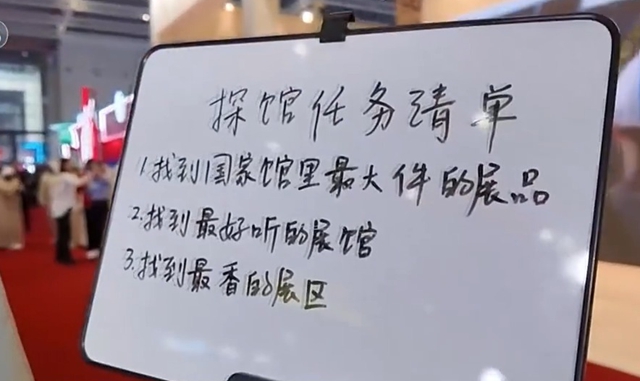 探馆任务清单
1.找到国家馆里最大件的展品
2.找到最好听的展馆
3.找到最香的展区